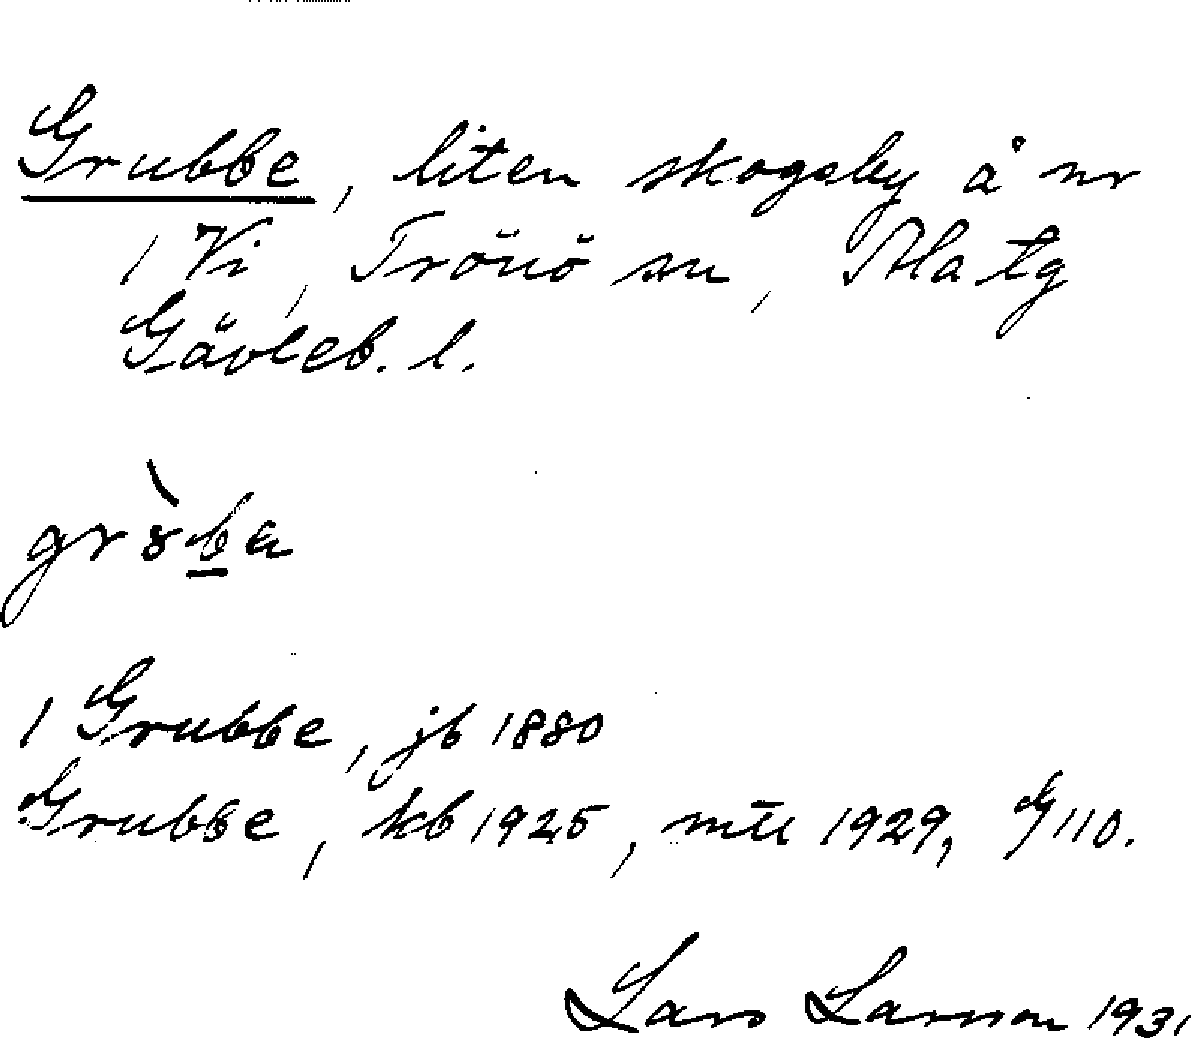 Grubbe, liten skogsby å nr
1 Vi, Trönö sn, Ala tg
Gävleb. l.
gr̀ȣb̲a
1 Grubbe, jb 1880
Grubbe, kb 1925, mtl 1929, G 110.
Lars Larsson 1931